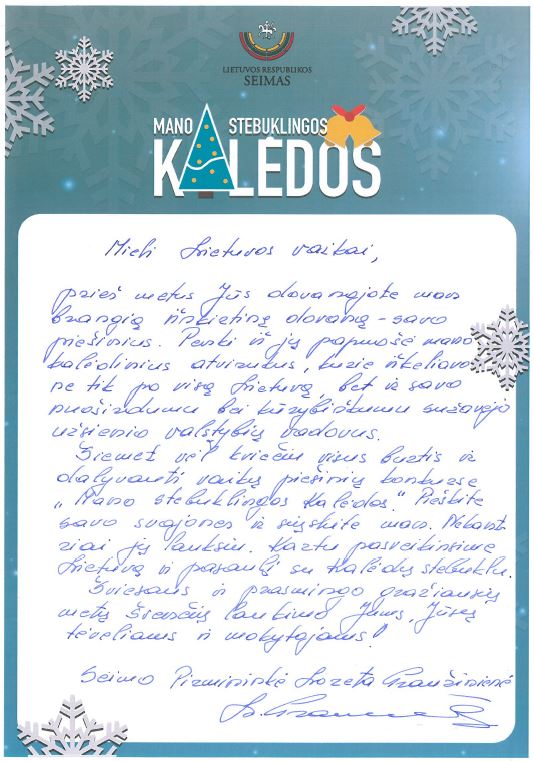 LIETUVOS RESPUBLIKOS
SEIMAS
MANO STEBUKLINGOS
KALĖDOS
Mieli Lietuvos vaikai,
prieš metus Jūs dovanojote man
brangią išskirtinę dovaną - savo
piešinius. Penki iš jų papuošė mano
kalėdinius atvirukus, kurie iškeliavo
ne tik po visą Lietuvą, bet ir savo
nuoširdumu bei kūrybiškumu sužavėjo
užsienio valstybių vadovus.
Šiemet vėl kviečiu visus burtis ir
dalyvauti vaikų piešinių konkurse
„Mano stebuklingos Kalėdos." Pieškite
savo svajones ir siųskite man. Nekant-
riai jų lauksiu. Kartu pasveikinsime
Lietuvą ir pasaulį su Kalėdų stebuklu.
Šviesaus ir prasmingo gražiausių
metų švenčių laukimo Jums, Jūsų
tėveliams ir mokytojams!
Seimo Pirmininkė Loreta Graužinienė